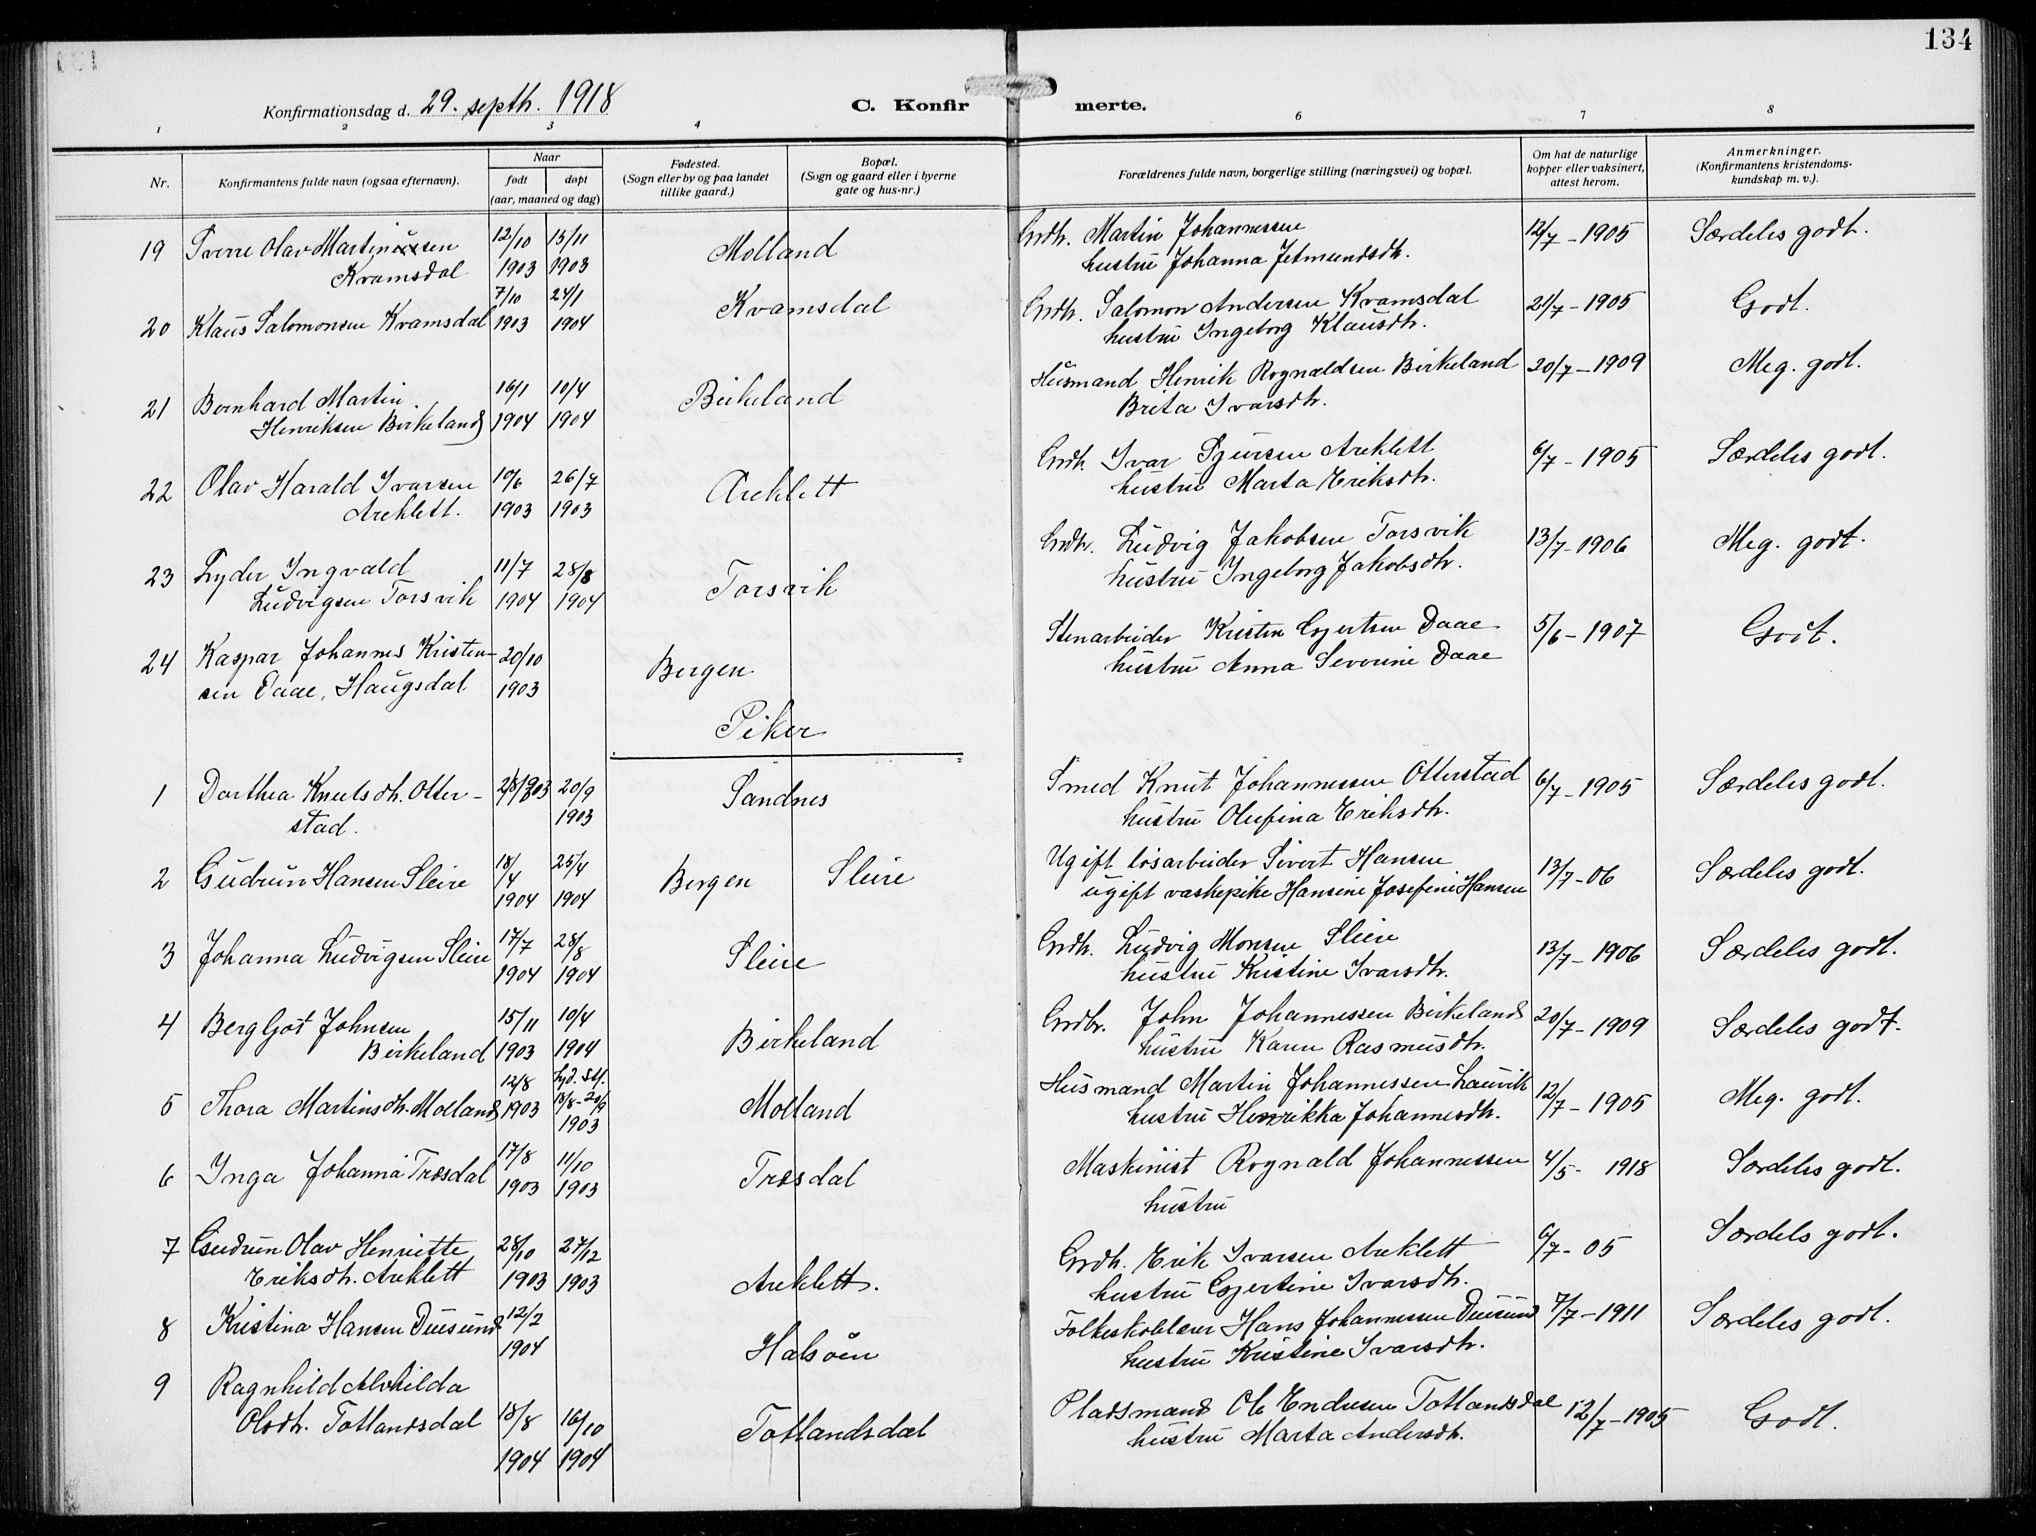 134
Konfirmationsdag d. 29. septb. 1918
C. Konfirmerte.
1 2 3 4 6 7 8
Nr.
Konfirmantens fulde navn (ogsaa efternavn).
Naar
født
døpt
(aar, maaned og dag)
Fødested.
(Sogn eller by og paa landet
tillike gaard.)
Bopæl.
(Sogn og gaard eller i byerne
gate og hus-nr.)
Forældrenes fulde navn, borgerlige stilling (næringsvei) og bopæl.
Om hat de naturlige
kopper eller vaksinert,
attest herom.
Anmerkninger.
(Konfirmantens kristendoms-
kundskap m. v.).
19 Sverre Olav Martinussen 12/10 13/11 Molland Grdb. Martin Johannessen 12/7 - 1905 Særdeles godt.
Kvamsdal 1903 1903 hustru Johanna Jetmundsdtr.
20 Klaus Salomonsen Kvamsdal 7/10 1903 24/1 1904 Kvamsdal Grdb. Salomon Andersen Kvamsdal 21/7 - 1905 Godt.
hustru Ingeborg Klausdtr.
21 Bernhard Martin 16/1 10/4 Birkeland Husmand Henrik Rognaldsen Birkeland 20/7 - 1909 Meg. godt.
Henriksen Birkeland 1904 1904 Brita Ivarsdtr.
22 Olav Harald Ivarsen 10/6 26/7 Areklett Grdb. Ivar Sjursen Areklett 6/7 - 1905 Særdeles godt.
Areklett. 1903 1903 hustru Marta Eriksdtr.
23 Lyder Ingvald 11/7 28/8 Torsvik Grdbr. Ludvig Jakobsen Torsvik 13/7 - 1906 Meg. godt.
Ludvigsen Torsvik 1904 1904 hustru Ingeborg Jakobsdtr.
24 Kaspar Johannes Kristen- 20/10 Bergen Stenarbeider Kristen Gjertsen Daae 5/6 - 1907 Godt.
sen Daae, Haugsdal 1903 hustru Anna Severine Daae
Piker
1 Dorthea Knutsdtr. Otter- 28/8 03 20/9 Sandnes Smed Knut Johannessen Otterstad 6/7 - 1905 Særdeles godt.
stad. 1903 hustru Olufina Eriksdtr.
2 Gudrun Hansen Sleire 18/4 1904 25/4 1904 Bergen Sleire Ugift løsarbeider Sivert Hansen 13/7 - 06 Særdeles godt.
ugift vaskepike Hansine Josefine Hansen
3 Johanna Ludvigsen Sleire 17/7 1904 28/8 1904 Sleire Grdb. Ludvig Monsen Sleire 13/7 - 1906 Særdeles godt.
hustru Kristine Ivarsdtr.
4 Bergljot Johnsen 15/11 10/4 Birkeland Grdbr. John Johannessen Birkeland 20/7 - 1909 Særdeles godt.
Birkeland 1903 1904 hustru Karen Rasmusdtr.
5 Thora Martinsdtr. Molland 12/8 1903 18/8 - 20/9 1903 Molland Husmand Martin Johannessen Lauvik 12/7 - 1905 Meg. godt.
hustru Henrikka Johannesdtr.
6 Inga Johanna Træsdal 17/8 1903 11/10 1903 Træsdal Maskinist Rognald Johannessen 4/5 - 1918 Særdeles godt.
hustru
7 Gudrun Olav Henriette 28/10 27/12 Areklett. Grdb. Erik Ivarsen Areklett 6/7 - 05 Særdels godt.
Eriksdtr. Areklett 1903 1903 hustru Gjertine Ivarsdtr.
8 Kristina Hansen Duesund 12/2 1904 Halsøen Folkeskolelærer Hans Johannessen Duesund 7/7 - 1911 Særdeles godt.
hustru Kristine Ivarsdtr.
9 Ragnhild Alvhilda
Olsdtr. Totlandsdal 18/8 1904 16/10 1904 Totlandsdal Pladsmand Ole Endresen Totlandsdal 12/7 - 1905 Godt.
hustru Marta Andersdtr.